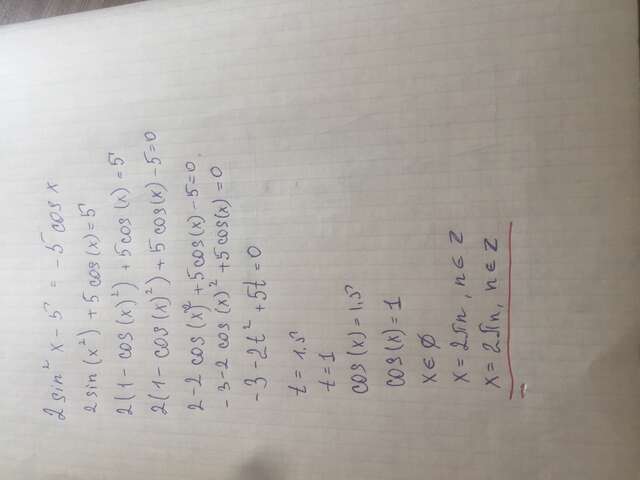 2 sin² x - 5 = -5 cos x
2 sin (x²) + 5 cos(x) = 5
2(1 - cos(x)²) + 5cos(x) = 5
2(1 - cos(x)²) + 5 cos(x) - 5 = 0
2 - 2 cos(x)² + 5cos(x) - 5 = 0
-3 - 2 cos(x)² + 5cos(x) = 0
-3 - 2t² + 5t = 0
t = 1.5
t = 1
cos(x) = 1,5
cos(x) = 1
x ∈ ∅
x = 2πn, n ∈ Z
x = 2πn, n ∈ Z